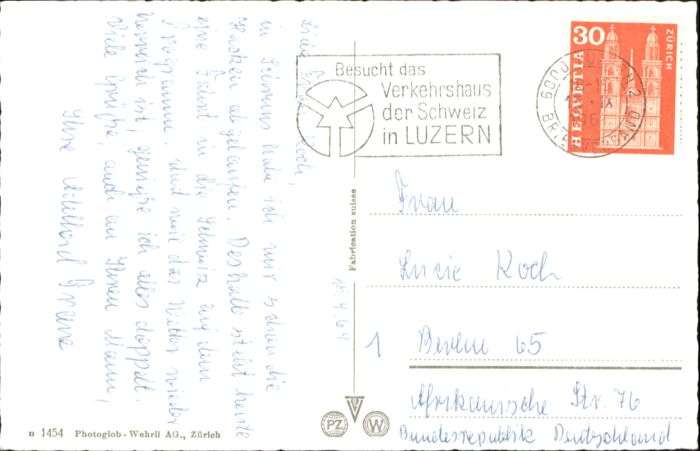 Liebe Frau Koch,
in Schruns habe ich mir schon die
Hacken abgelaufen. Deshalb steht heute
eine Fahrt in die Schweiz auf dem
Programm. Und weil das Wetter wieder
ist, genieße ich alles doppelt.
Viele Grüße, auch an Ihren Mann,
Ihre
Besucht das
Verkehrshaus
der Schweiz
in LUZERN
30
HELVETIA
ZÜRICH
6000 LUZERN 2
BRIEFVERSAND
Frau
Lucie Koch
1 Berlin 65
Afrikanische Str. 76
Bundesrepublik Deutschland
Fabrication suisse
PZ W
n 1454 Photoglob-Wehrli AG., Zürich